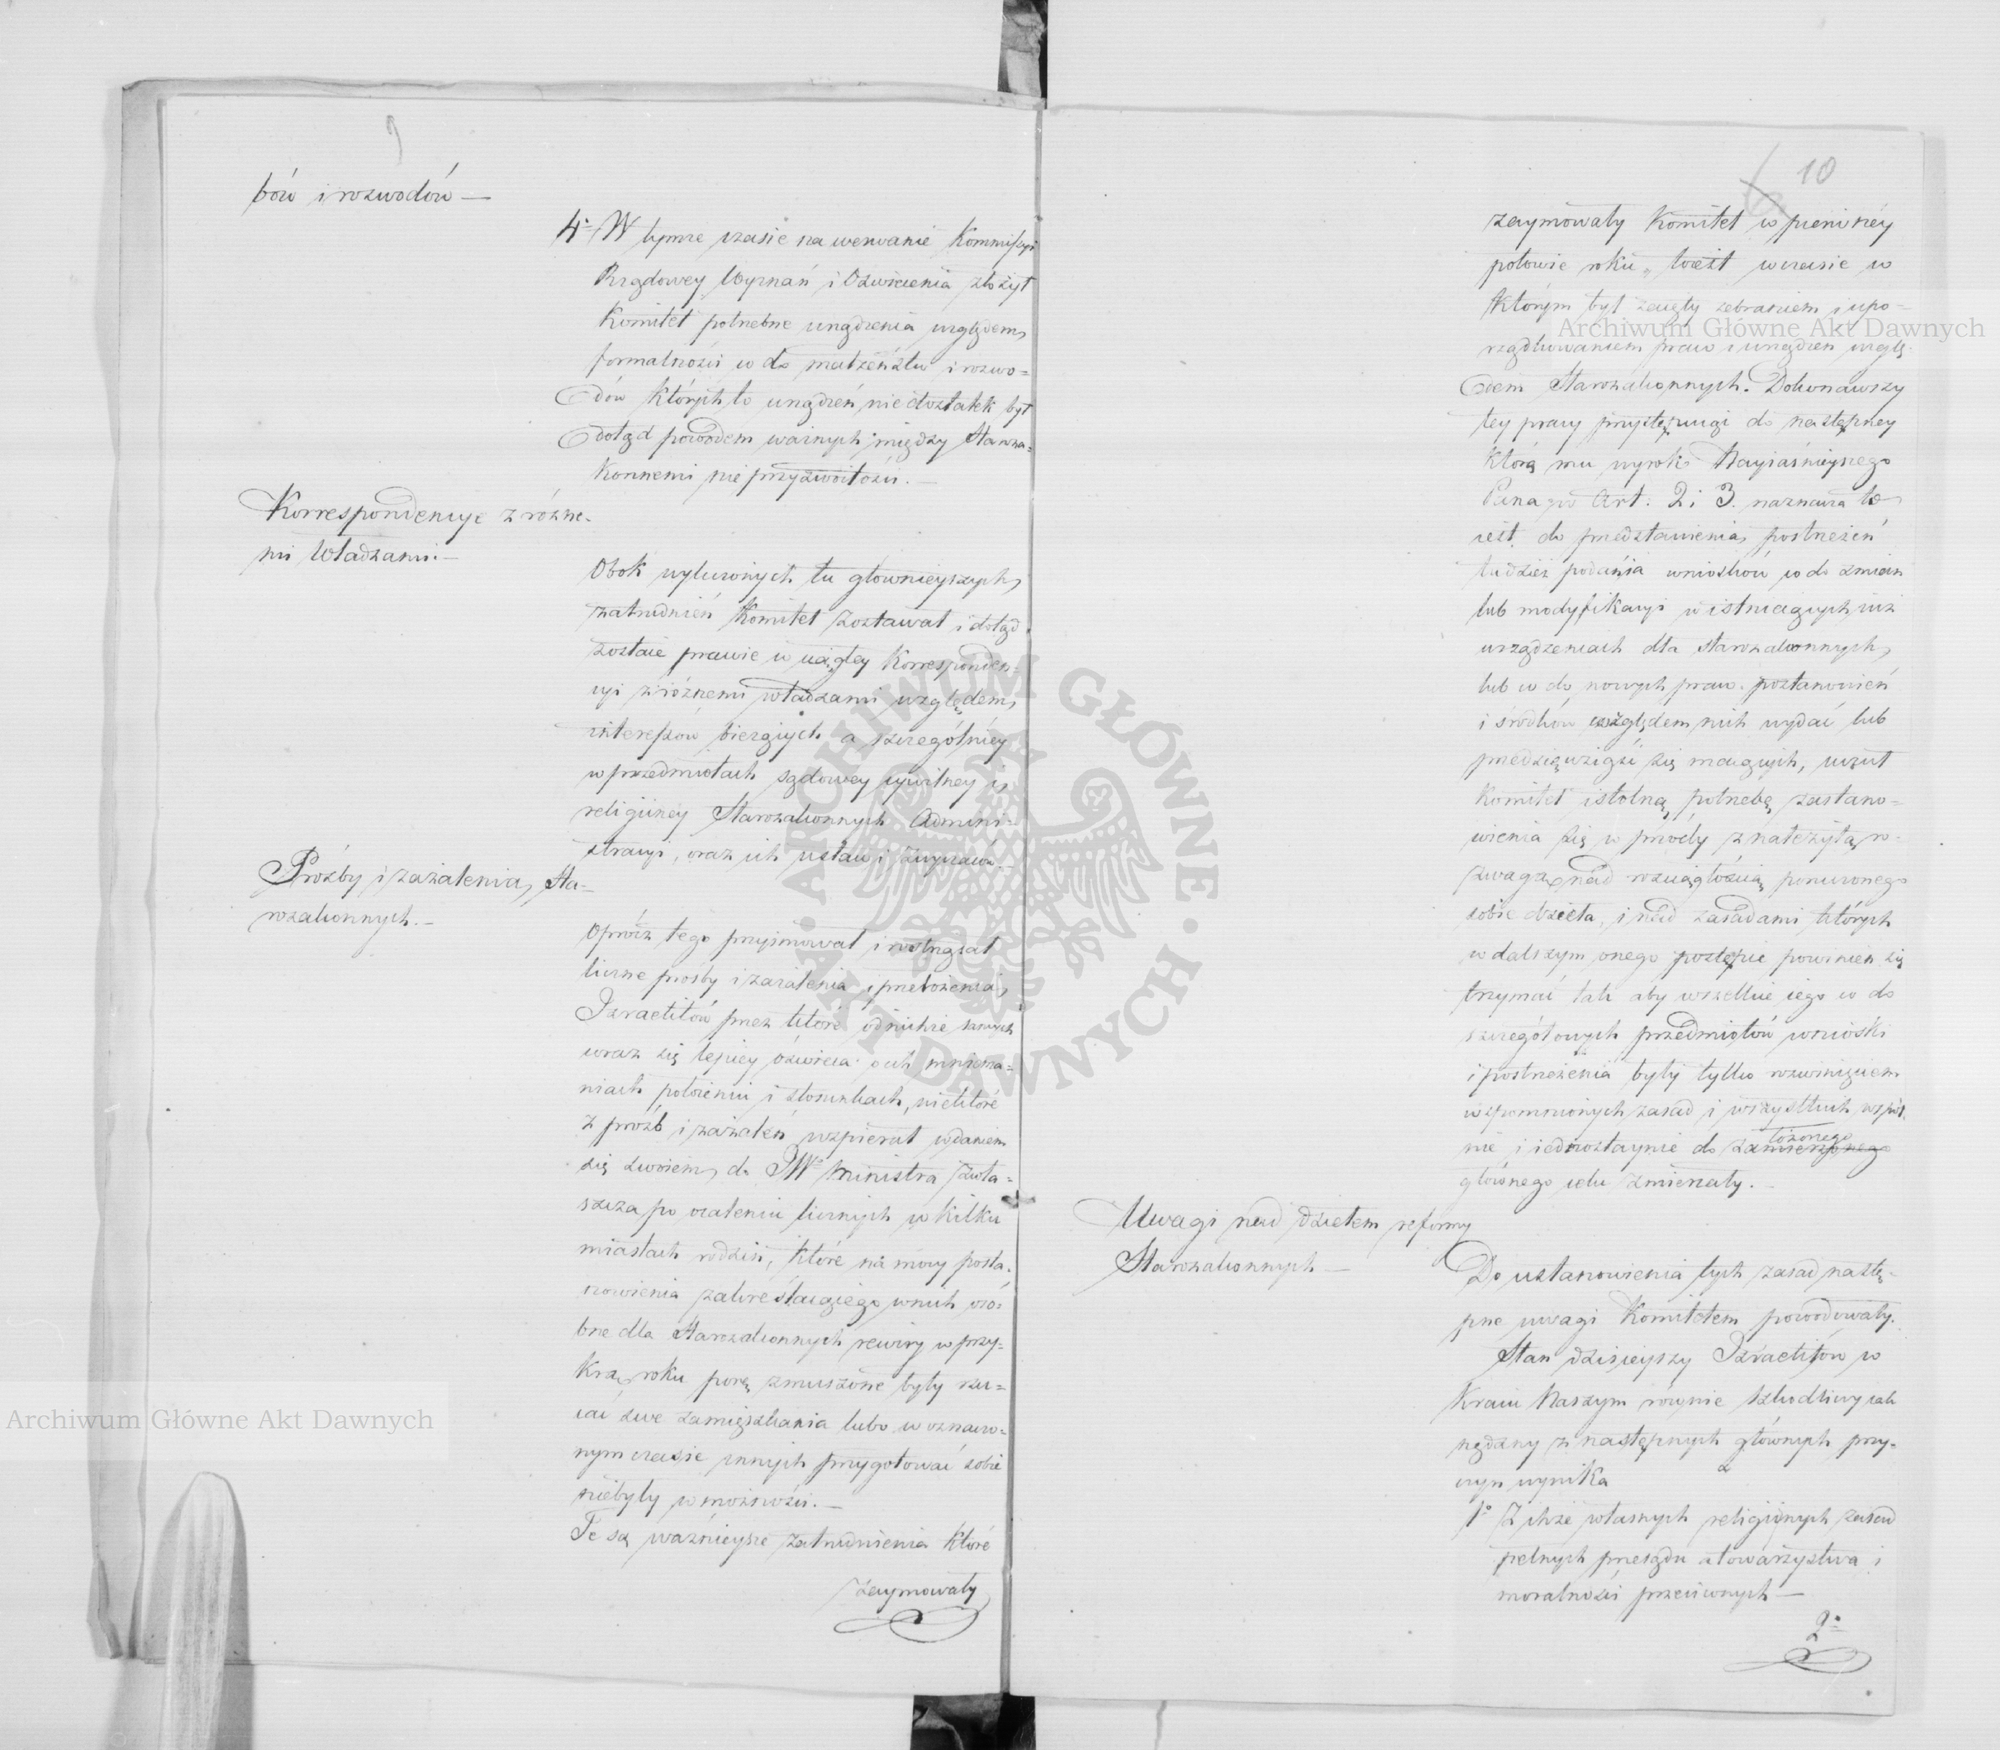 9
bów i rozwodów —
4º W tymże czasie na wezwanie Kommissyi
Rządowey Wyznań i Oświecenia złożył
Komitet potrzebne urządzenia względem
formalności co do małżeństw i rozwo=
dów których to urządzeń niedostatek był
dotąd powodem ważnych między Staroza=
konnemi nieprzyzwoitości. —
Korrespondencye z różne=
mi Władzami. —
Obok wyłuszczonych tu główniejszych
zatrudnień Komitet zostawał i dotąd
zostaie prawie w ciągłey Korresponden=
cyi z różnemi władzami względem
interessów bieżących a szczególniey
w przedmiotach sądowey cywilney i
religiiney Starozakonnych Admini=
stracyi, oraz ich ustaw i zwyczaiów. —
Prośby i zażalenia Sta=
rozakonnych. —
Oprócz tego przyimował i roztrząsał
liczne prośby i zażalenia i przełożenia
Izraelitów przez które od nichże samych
coraz się lepiey oświeca o ich mniema=
niach położeniu i stosunkach, niektóre
z próśb i zażaleń wspierał wdaniem
się swoiem do JWº Ministra zwła=
szcza po ocaleniu licznych w kilku
miastach rodzin, które na mocy posta=
nowienia zakreślaiącego w nich oso=
bne dla Starozakonnych rewiry w przy=
krą roku porę zmuszone były rzu=
cać swe zamieszkania lubo w oznaczo=
nym czasie innych przygotować sobie
niebyły w możności. —
Te są ważnieysze zatrudnienia które
zaymowały
10
zaymowały Komitet w pierwszéy
połowie roku, to iest w czasie w
którym był zaięty zebraniem i upo=
rządkowaniem praw i urządzeń wzglę=
dem Starozakonnych. Dokonawszy
tey pracy przystępuiąc do następney
którą mu wyrok Nayiaśnieyszego
Pana w Art: 2 i 3. naznacza to
iest, do przedstawienia postrzeżeń
tudzież podania wniosków co do zmian
lub modyfikacyi w istnieiących iuż
urządzeniach dla starozakonnych,
lub co do nowych praw postanowień
i środków względem nich wydać lub
przedsięwziąść się maiących, uczuł
Komitet istotną potrzebę zastano=
wienia się w przódy z należytą ro=
zwagą nad rozciągłością poruczonego
sobie dzieła, i nad zasadami których
w dalszym onego postępie powinien się
trzymać tak aby wszelkie iego co do
szczegółowych przedmiotów wnioski
i postrzeżenia były tylko rozwinięciem
wspomnionych zasad i wszystkich wspól=
nie i iednostaynie do zamierzonego łożonego
głównego celu zmierzały. —
Uwagi nad dziełem reformy
Starozakonnych —
Do ustanowienia tych zasad nastę=
pne uwagi Komitetem powodowały.
Stan dzisieyszy Izraelitów w
Kraiu Naszym równie szkodliwy iak
nędzny z następnych głównych przy=
czyn wynika
1º Z ichże własnych religiinych zasad
pełnych przesądu a towarzystwa i
moralności przeciwnych —
2º
Archiwum Główne Akt Dawnych
Archiwum Główne Akt Dawnych
ARCHIWUM GŁÓWNE AKT DAWNYCH